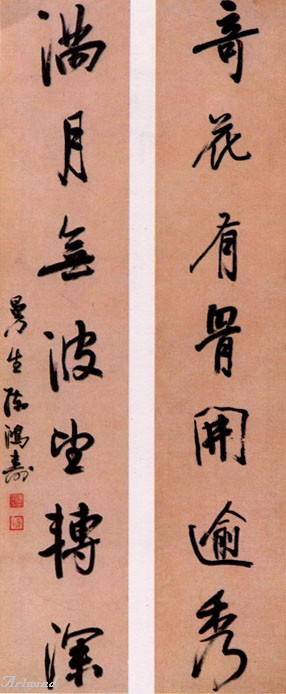 奇花有骨開逾秀
滿月無波望轉深
曼生陳鴻壽
Artmind